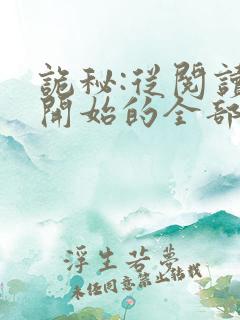 詭秘:從閱讀
開始的全部
浮生若夢
未經同意禁止轉載